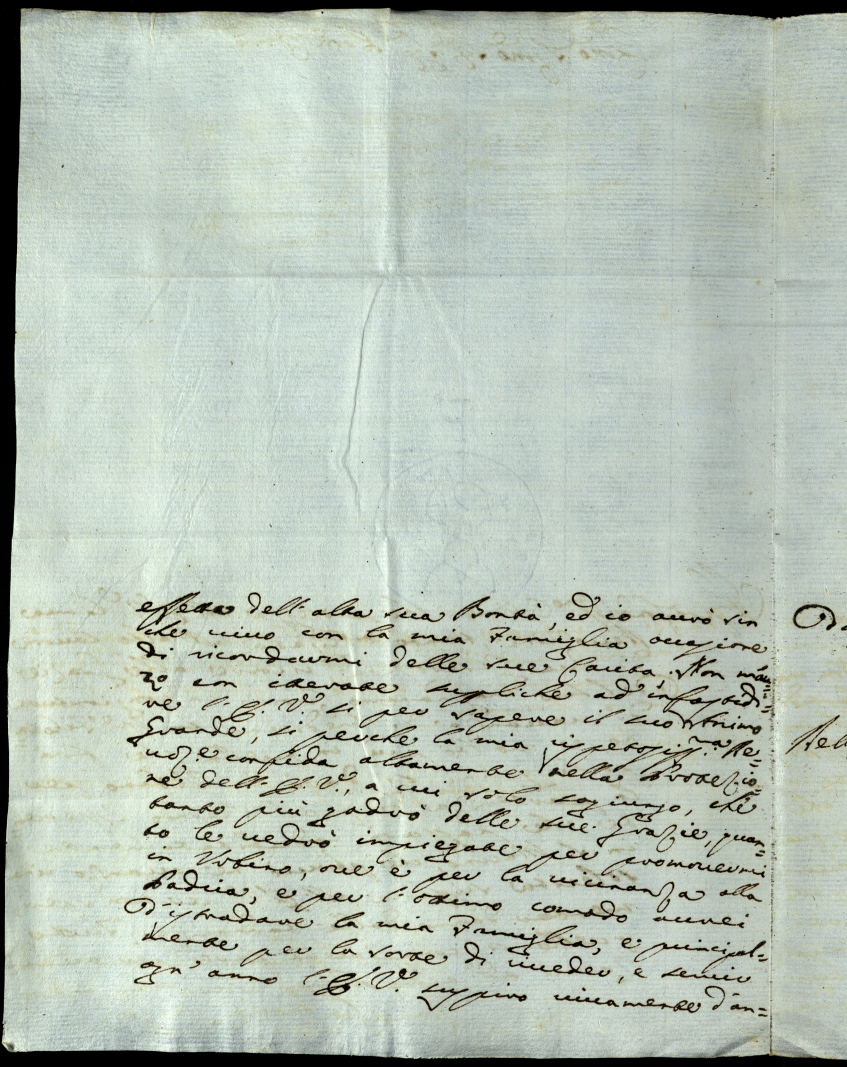 effetto dell'alta sua Bontà, ed io avrò sin
che vivo con la mia Famiglia occasione
di ricordarmi delle sue Carità, Non man=
co con iterate suppliche ad infastidi=
re l'E. V. si per sapere il suo Animo
Grande, si perche la mia
confida altamente nella Protezio=
ne dell'E. V., a cui solo sogiungo, che
tanto più godrò delle sue Grazie, quan=
to le vedrò impiegate per promovermi
in Urbino, ove è per la vicinanza alla
Padria, e per l'ottimo comodo avrei
d'istradare la mia Famiglia, e principal=
mente per la sorte di riveder, e servir
ogn'anno l'E. V. sospiro vivamente d'an=